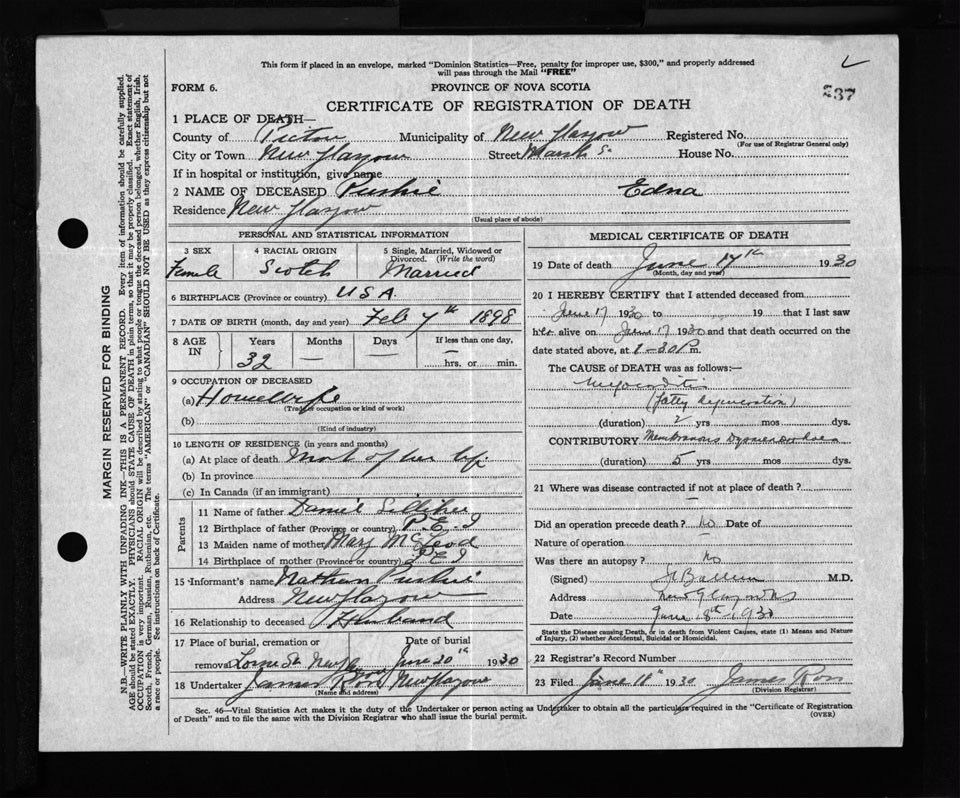 This form if placed in an envelope, marked "Dominion Statistics—Free, penalty for improper use, $300," and properly addressed
will pass through the Mail "FREE"
FORM 6.
PROVINCE OF NOVA SCOTIA
337
CERTIFICATE OF REGISTRATION OF DEATH
1 PLACE OF DEATH—
County of Pictou Municipality of New Glasgow Registered No.
(For use of Registrar General only)
City or Town New Glasgow Street Marsh St. House No.
If in hospital or institution, give name
2 NAME OF DECEASED Pushie Edna
Residence New Glasgow
(Usual place of abode)
PERSONAL AND STATISTICAL INFORMATION
3 SEX 4 RACIAL ORIGIN 5 Single, Married, Widowed or
Divorced. (Write the word)
Female Scotch Married
6 BIRTHPLACE (Province or country) U.S.A.
7 DATE OF BIRTH (month, day and year) Feb 7th 1898
8 AGE IN Years Months Days If less than one day,
32 — — — hrs. or min.
9 OCCUPATION OF DECEASED
(a) Housewife
(Trade, occupation or kind of work)
(b)
(Kind of industry)
10 LENGTH OF RESIDENCE (in years and months)
(a) At place of death Most of her life
(b) In province
(c) In Canada (if an immigrant)
Parents
11 Name of father Daniel
12 Birthplace of father (Province or country) P.E.I
13 Maiden name of mother Mary McLeod
14 Birthplace of mother (Province or country) P E I
15 Informant's name Nathan Pushie
Address New Glasgow
16 Relationship to deceased Husband
17 Place of burial, cremation or Date of burial
removal Lorne St. New June 20th 1930
18 Undertaker James Ross New Glasgow
(Name and address)
MEDICAL CERTIFICATE OF DEATH
19 Date of death June 17th 1930
(Month, day and year)
20 I HEREBY CERTIFY that I attended deceased from
June 17 1930 to 19 that I last saw
her alive on June 17 1930 and that death occurred on
date stated above, at -30 P.m.
The CAUSE of DEATH was as follows:—
Myocarditis
(Fatty degeneration)
(duration) 2 yrs mos dys.
CONTRIBUTORY Membranous Dysmenorrhoea
(duration) 5 yrs mos dys.
21 Where was disease contracted if not at place of death?
—
Did an operation precede death? No Date of
Nature of operation —
Was there an autopsy? No
(Signed) M.D.
Address New Glasgow NS
Date June 18th 1930
State the Disease causing Death, or in death from Violent Causes, state (1) Means and Nature
of Injury, (2) whether Accidental, Suicidal or Homicidal.
22 Registrar's Record Number
23 Filed June 1930 James Ross
(Division Registrar)
Sec. 46—Vital Statistics Act makes it the duty of the Undertaker or person acting as Undertaker to obtain all the particulars required in the "Certificate of Registration
of Death" and to file the same with the Division Registrar who shall issue the burial permit.
(OVER)
MARGIN RESERVED FOR BINDING
N.B.—WRITE PLAINLY WITH UNFADING INK—THIS IS A PERMANENT RECORD. Every item of information should be carefully supplied.
AGE should be stated EXACTLY. PHYSICIANS should STATE CAUSE OF DEATH in plain terms, so that it may be properly classified. Exact statement of
OCCUPATION is very important. RACIAL ORIGIN will be described by stating to what people or tongue the deceased person belonged, whether English, Irish,
Scotch, French, German, Russian, Ruthenian, etc. The terms "AMERICAN" or "CANADIAN" SHOULD NOT BE USED as they express citizenship but not
a race or people. See instructions on back of Certificate.